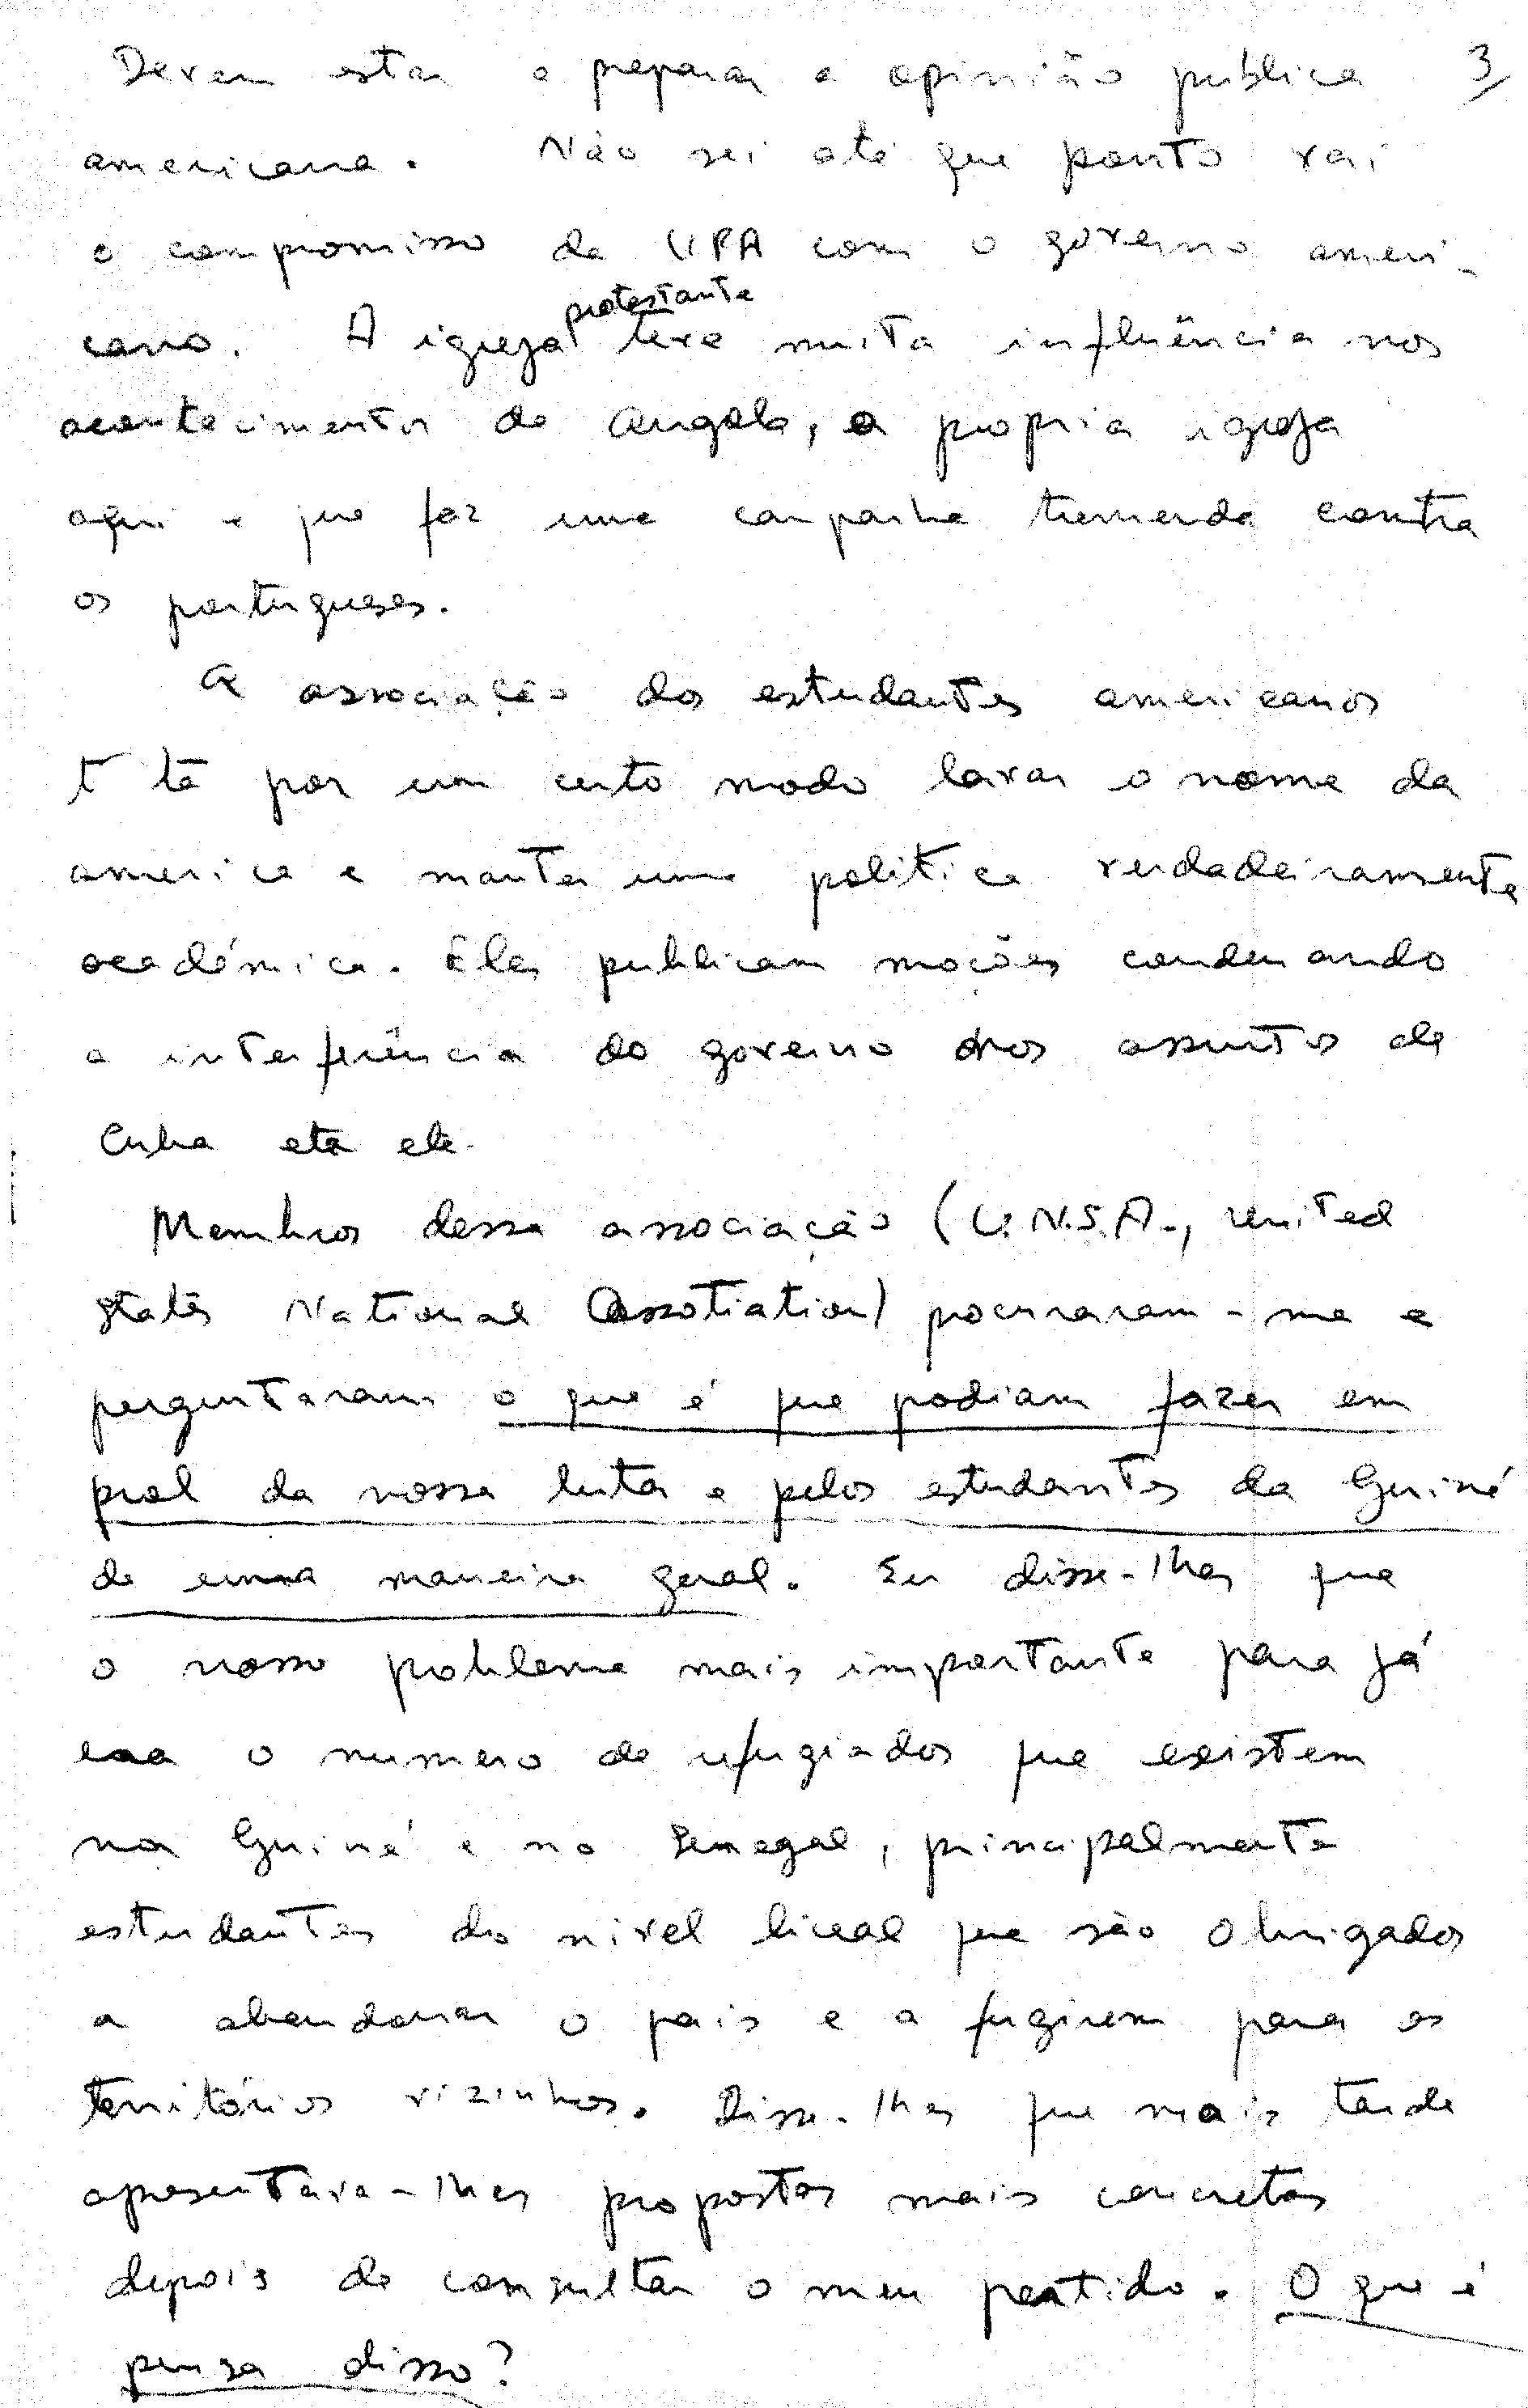 Devem estar a preparar a opinião publica 3/
americana. Não sei até que ponto vai
o compromisso da UPA com o governo ameri-
cano. A igreja protestante teve muita influência nos
acontecimentos de Angola, a propria igreja
aqui é que faz uma campanha tremenda contra
os portugueses.
A associação dos estudantes americanos
por um certo modo lavar o nome da
america e manter uma politica verdadeiramente
académica. Eles publicam moções condenando
a interferência do governo nos assuntos de
Cuba etc etc.
Membros dessa associação (U.N.S.A., united
states National Assotiation) procuraram-me e
perguntaram o que é que podiam fazer em
prol da nossa luta e pelos estudantes da Guiné
de uma maneira geral. Eu disse-lhes que
o nosso problema mais importante para já
era o numero de refugiados que existem
na Guiné e no Senegal, principalmente
estudantes do nivel liceal que são obrigados
a abandonar o pais e a fugirem para os
territórios vizinhos. Disse-lhes que mais tarde
apresentava-lhes propostas mais concretas
depois de consultar o meu partido. O que é
pensa disso?